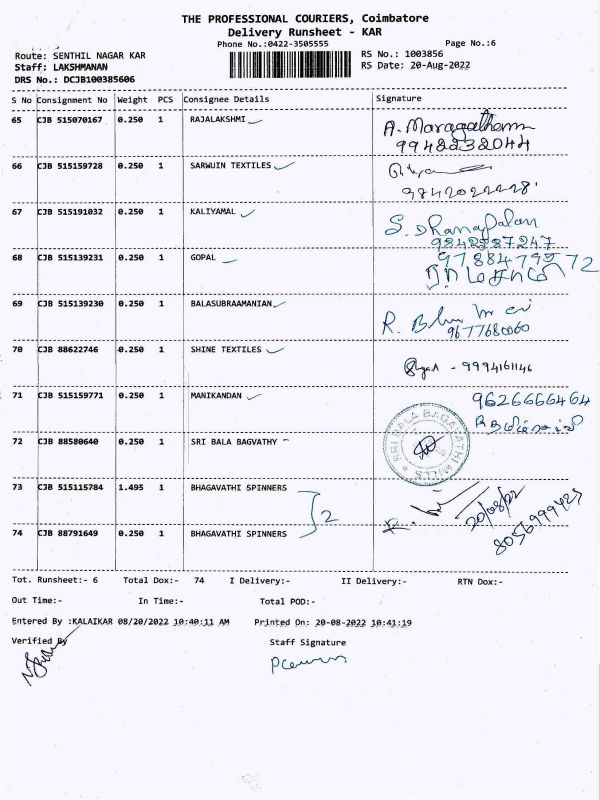 THE PROFESSIONAL COURIERS, Coimbatore
Delivery Runsheet - KAR
Phone No.:0422-3505555
Page No.:6
Route: SENTHIL NAGAR KAR
RS No.: 1003856
Staff: LAKSHMANAN
RS Date: 20-Aug-2022
DRS No.: DCJB100385606
S No Consignment No Weight PCS Consignee Details Signature
65 CJB 515070167 0.250 1 RAJALAKSHMI A. Maragatham
9948232044
66 CJB 515159728 0.250 1 SARWUIN TEXTILES
67 CJB 515191032 0.250 1 KALIYAMAL S. Dhanapalan
9842287247
68 CJB 515139231 0.250 1 GOPAL
69 CJB 515139230 0.250 1 BALASUBRAAMANIAN R.
9677680060
70 CJB 88622746 0.250 1 SHINE TEXTILES - 9994161146
71 CJB 515159771 0.250 1 MANIKANDAN 9626666464
72 CJB 88580640 0.250 1 SRI BALA BAGVATHY SRI BALA BAGAVATHI MILLS
73 CJB 515115784 1.495 1 BHAGAVATHI SPINNERS
2
20/08/22
8056999427
74 CJB 88791649 0.250 1 BHAGAVATHI SPINNERS
Tot. Runsheet:- 6 Total Dox:- 74 I Delivery:- II Delivery:- RTN Dox:-
Out Time:- In Time:- Total POD:-
Entered By :KALAIKAR 08/20/2022 10:40:11 AM Printed On: 20-08-2022 10:41:19
Verified By Staff Signature